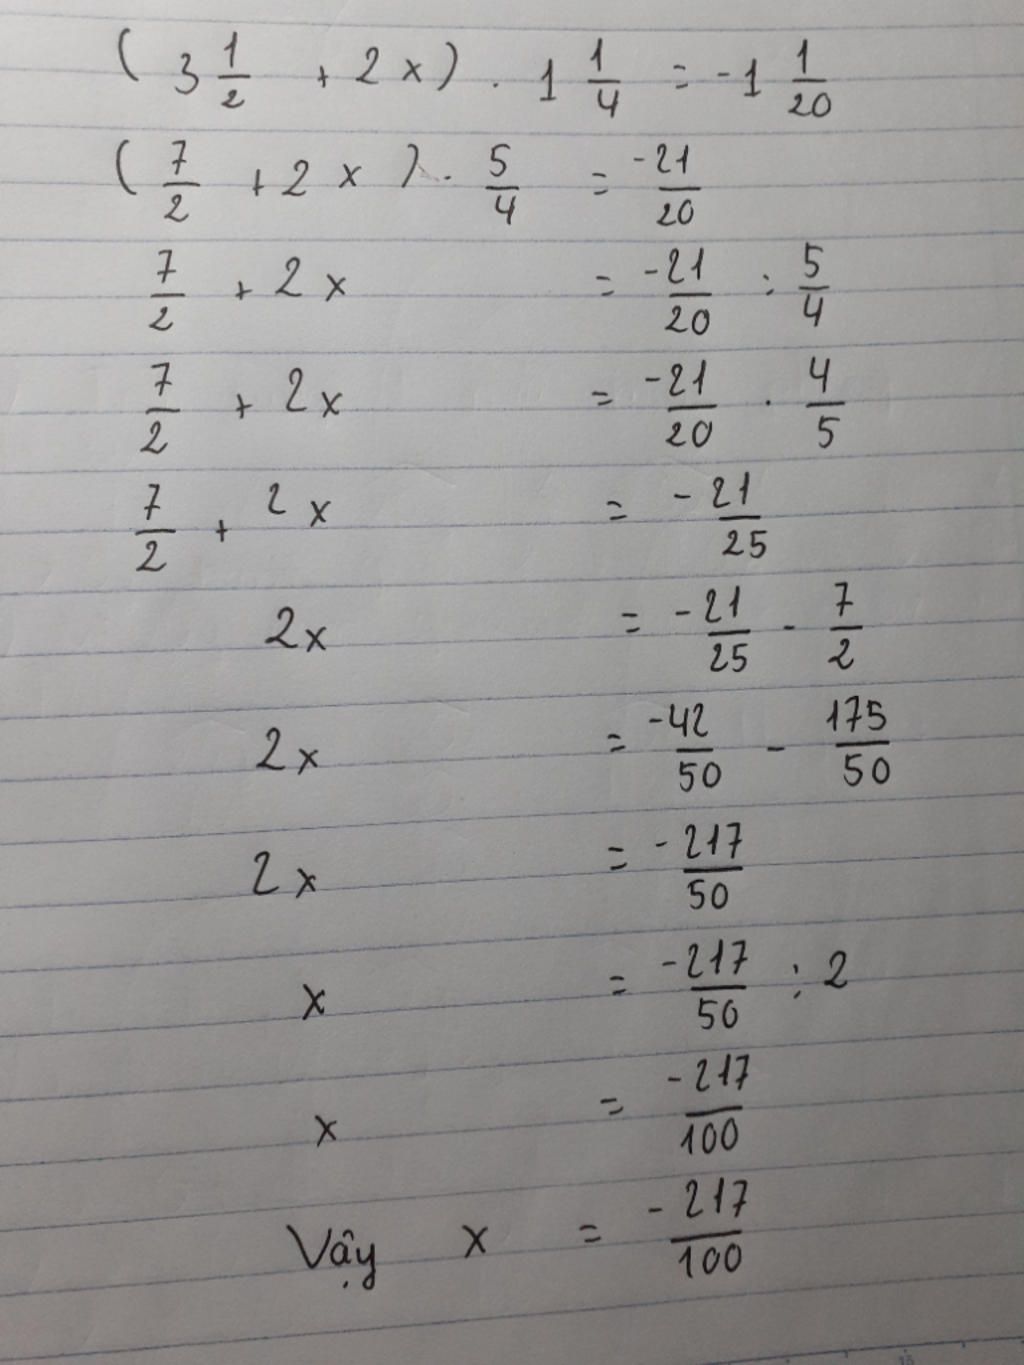 ( 3 1/2 + 2 x ) . 1 1/4 = -1 1/20
( 7/2 + 2 x ) . 5/4 = -21/20
7/2 + 2 x = -21/20 : 5/4
7/2 + 2x = -21/20 . 4/5
7/2 + 2 x = -21/25
2x = -21/25 - 7/2
2x = -42/50 - 175/50
2x = -217/50
x = -217/50 : 2
x = -217/100
Vậy x = -217/100